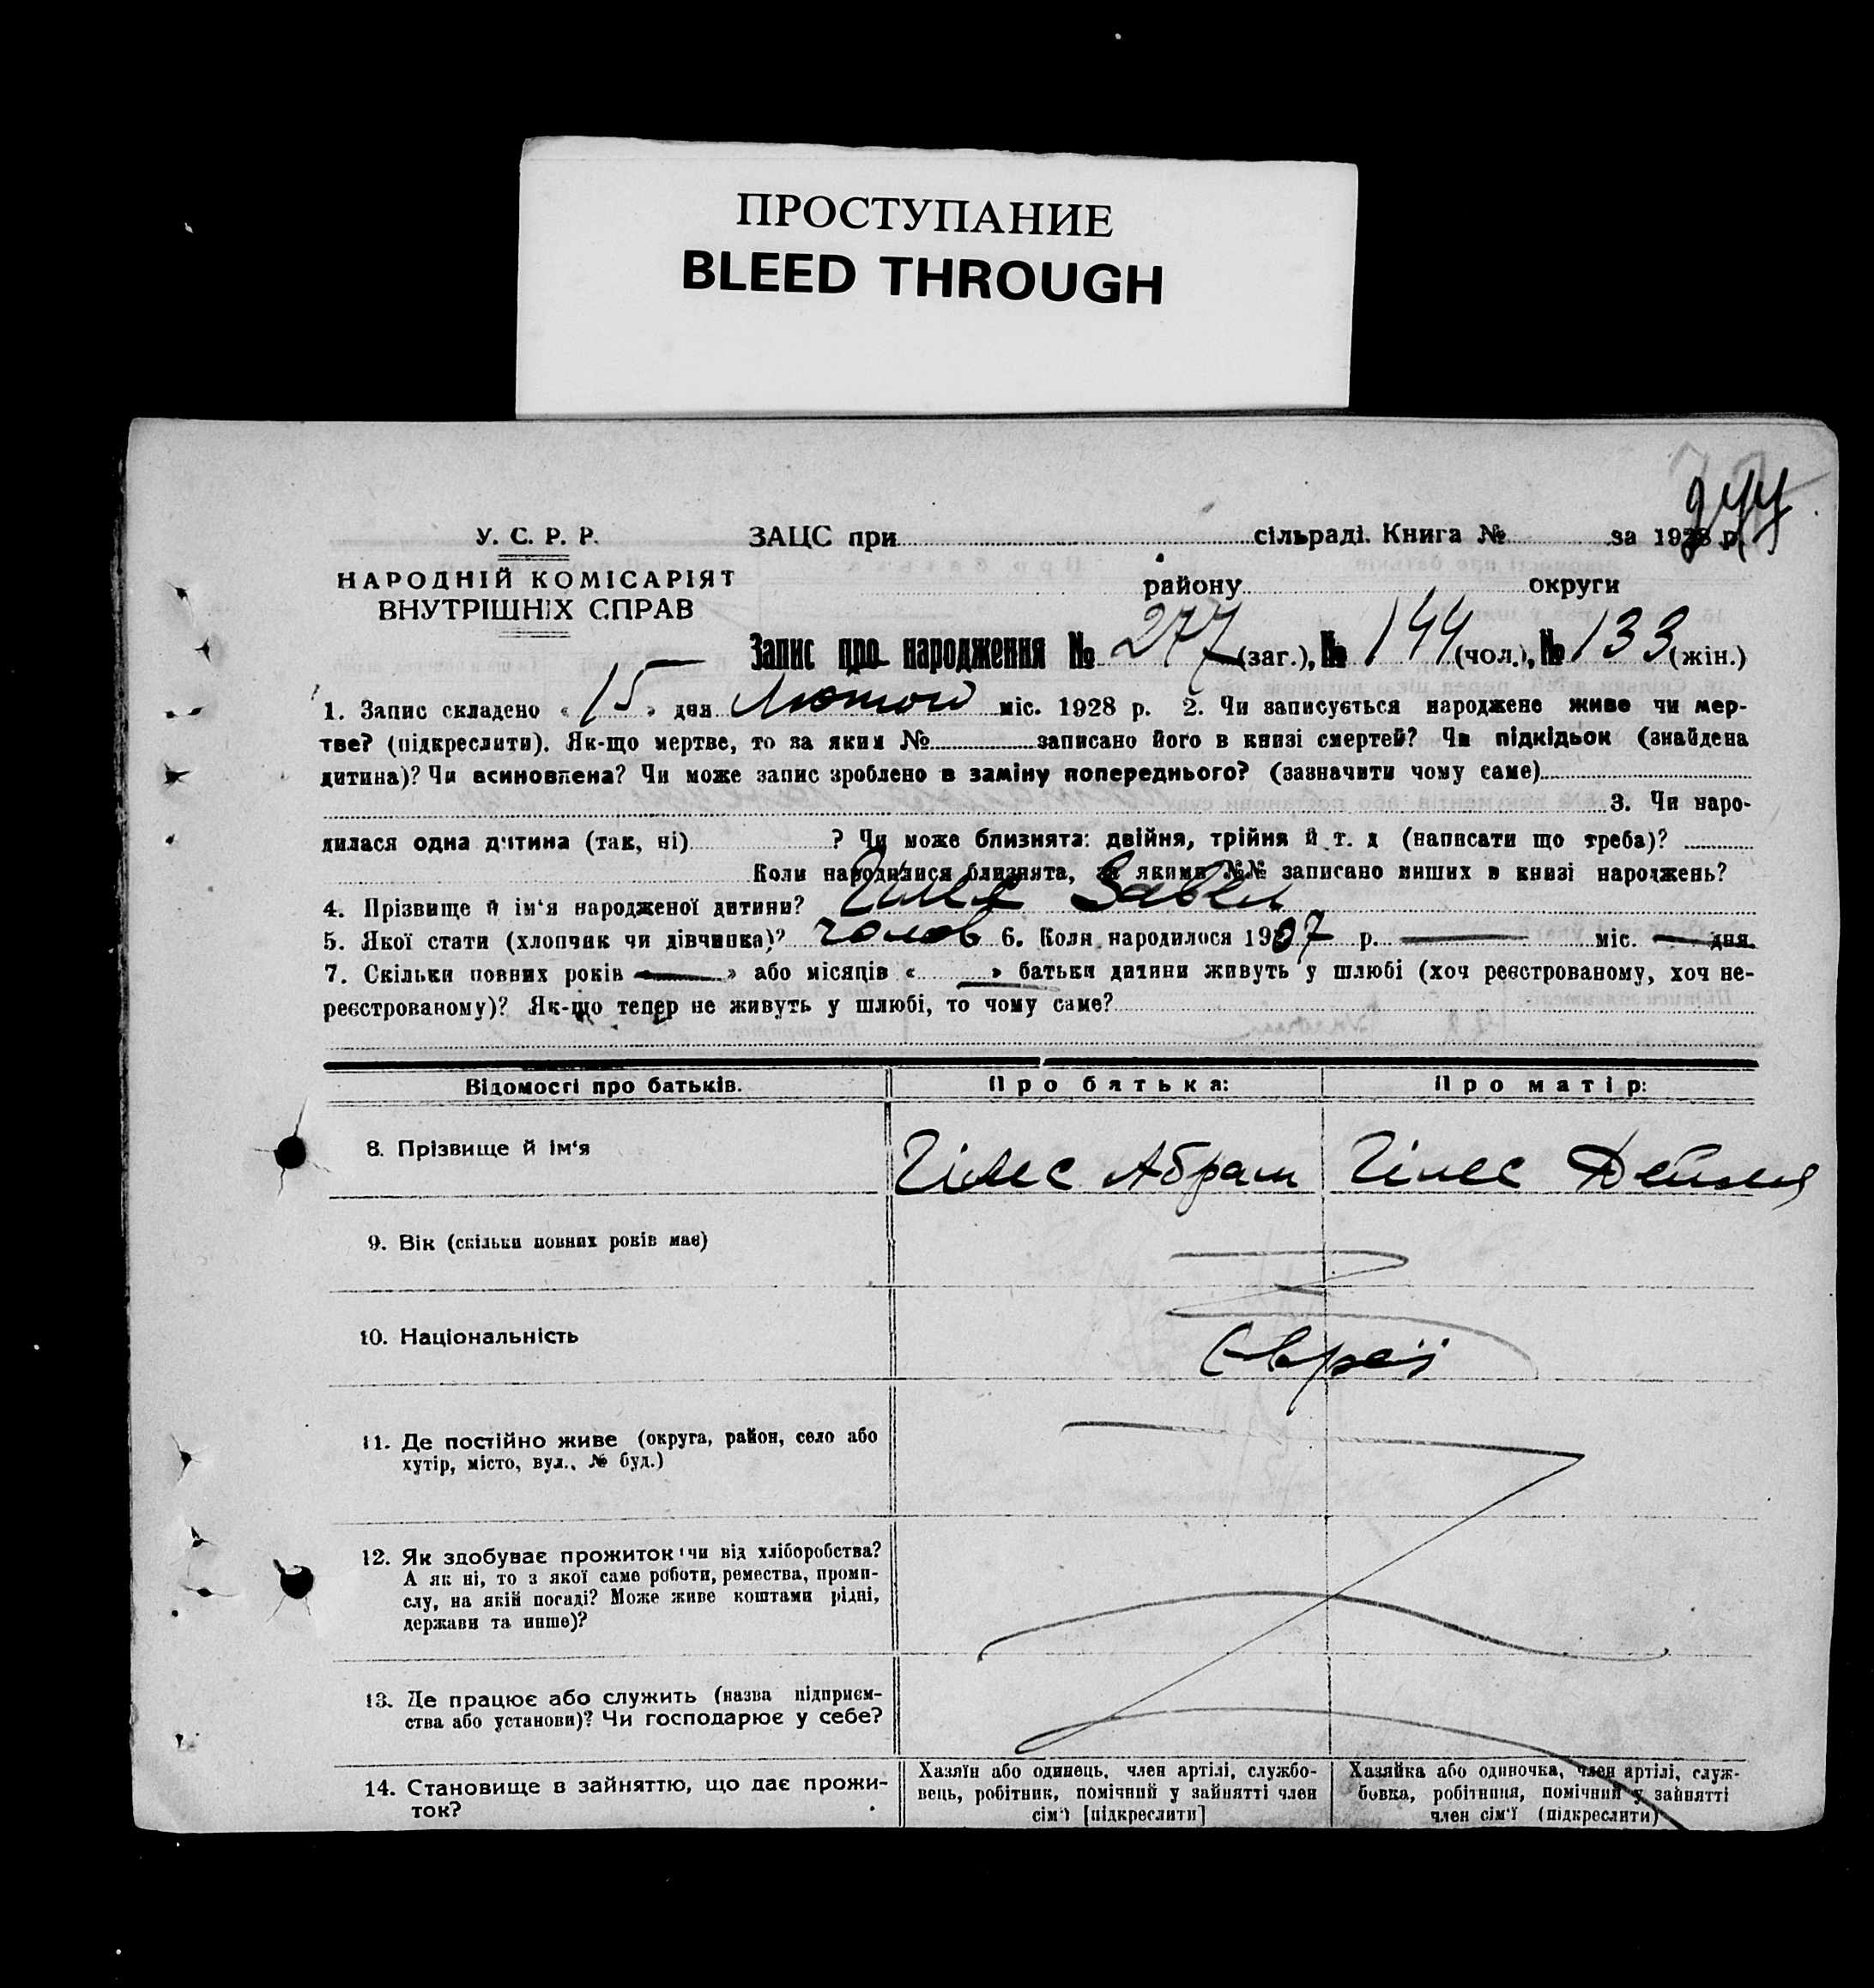 ПРОСТУПАНИЕ
BLEED THROUGH
277
У. С. Р. Р.
ЗАЦС при сільраді. Книга № за 1928 р.
НАРОДНІЙ КОМІСАРІЯТ
району округи
ВНУТРІШНІХ СПРАВ
Запис про народження № 277 (заг.), № 144 (чол.), № 133 (жін.)
1. Запис складено « 15 » дня Лютого міс. 1928 р. 2. Чи записується народжене живе чи мер-
тве? (підкреслити). Як-що мертве, то за яким № записано його в книзі смертей? Чи підкідьок (знайдена
дитина)? Чи всиновлена? Чи може запис зроблено в заміну попереднього? (зазначити чому саме)
3. Чи наро-
дилася одна дитина (так, ні) ? Чи може близнята: двійня, трійня й т. д (написати що треба)?
Коли народилися близнята, за якими №№ записано инших в книзі народжень?
4. Прізвище й ім'я народженої дитини? Гілес
5. Якої стати (хлопчик чи дівчинка)? чолов 6. Коли народилося 1907 р. міс. дня.
7. Скільки повних років » або місяців « » батьки дитини живуть у шлюбі (хоч реєстрованому, хоч не-
реєстрованому)? Як-що тепер не живуть у шлюбі, то чому саме?
Відомості про батьків. Про батька: Про матір:
8. Прізвище й ім'я Гілес Абрам Гілес
9. Вік (скільки повних років має)
10. Національність Євреї
11. Де постійно живе (округа, район, село або
хутір, місто, вул., № буд.)
12. Як здобуває прожиток (чи від хліборобства?
А як ні, то з якої саме роботи, ремества, проми-
слу, на якій посаді? Може живе коштами рідні,
держави та инше)?
13. Де працює або служить (назва підприєм-
ства або установи)? Чи господарює у себе?
14. Становище в зайняттю, що дає прожи-
ток?
Хазяїн або одинець, член артілі, службо-
вець, робітник, помічний у зайнятті член
сім'ї [підкреслити]
Хазяйка або одиночка, член артілі, служ-
бовка, робітниця, помічний у зайнятті
член сім'ї (підкреслити)